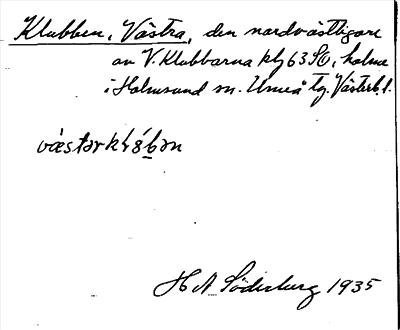 Klubben, Västra, den nordvästligare
av V. Klubbarna klj 63 SO, holme
i Holmsund sn. Umeå tg. Västerb. l.
västərkl8bən
H A Söderberg 1935